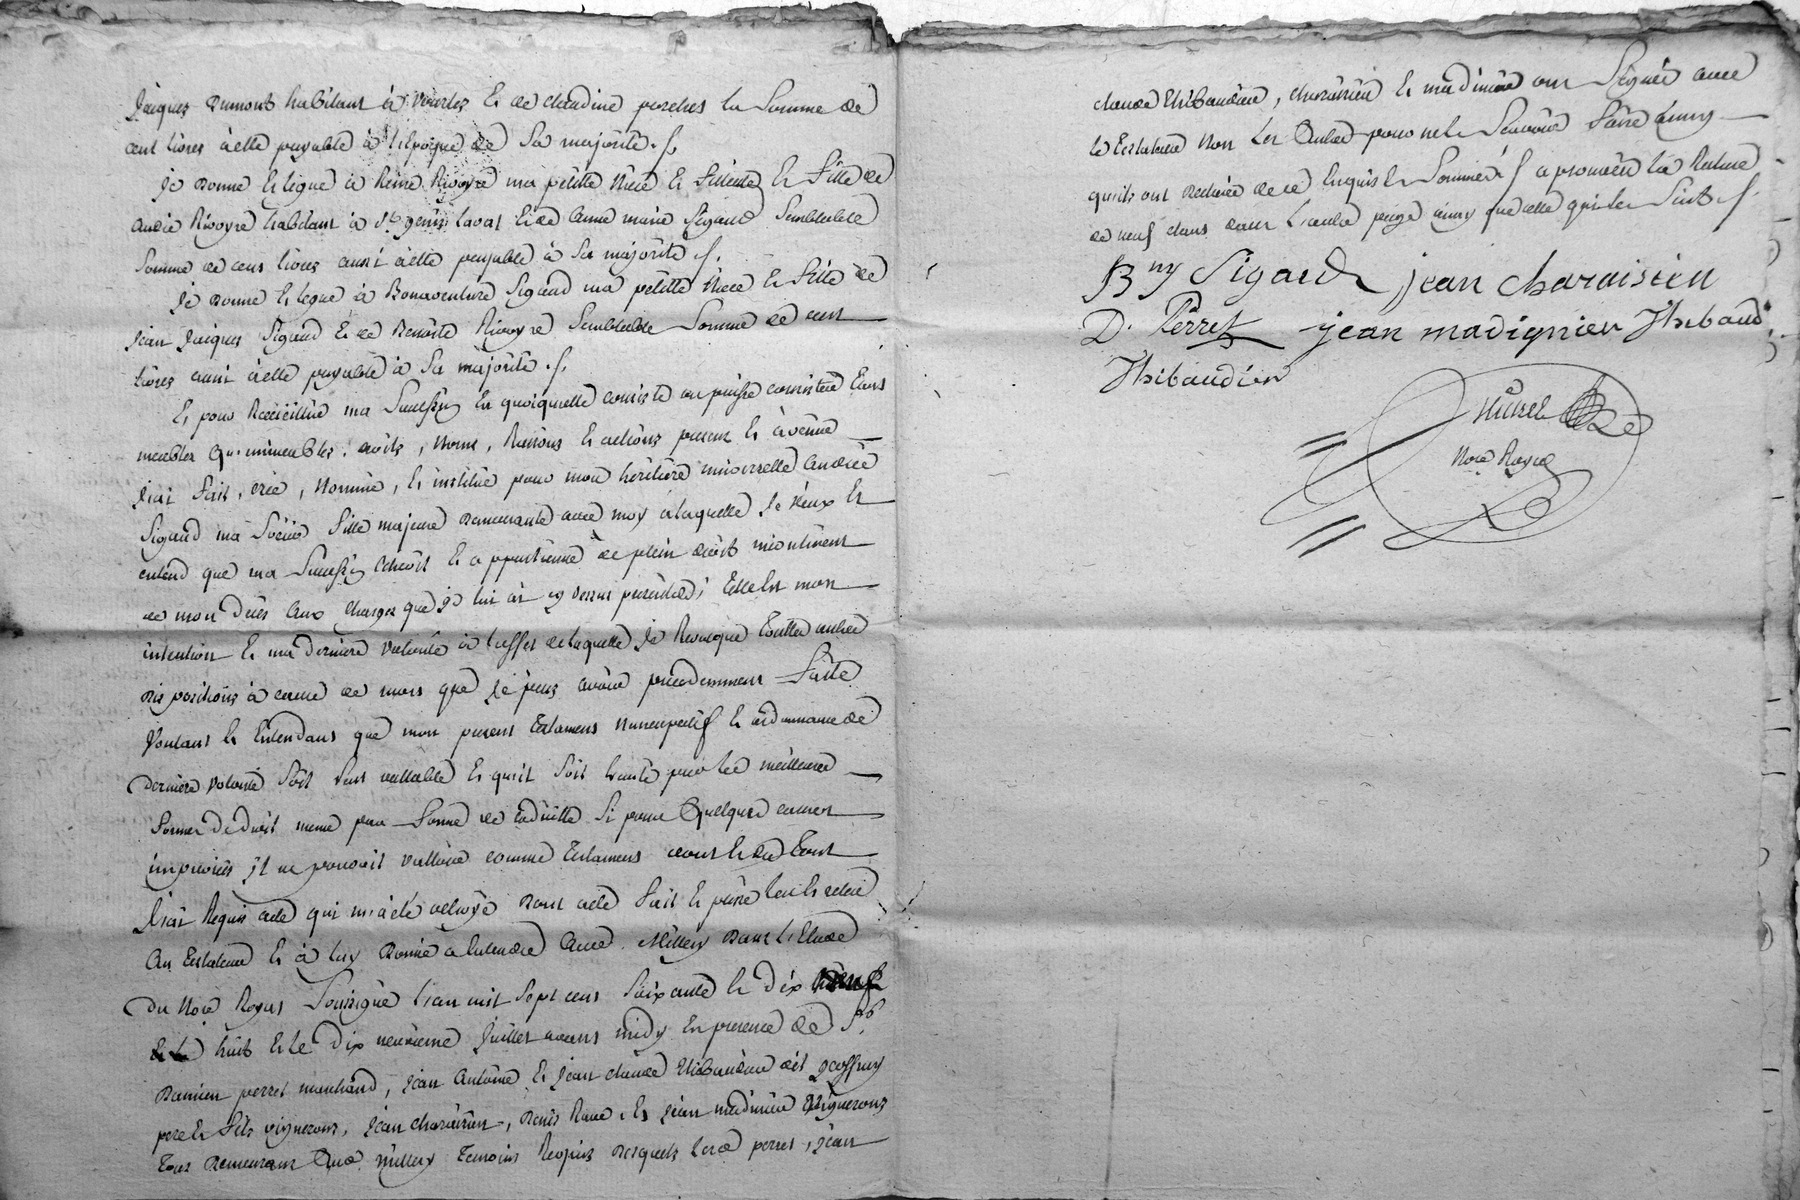 Jacques Dumont habitant à Vourles Et de claudine perches la Somme de
cent livres à elle payable à l'Epoque de Sa majorité ./.
Je Donne Et legue à Reine Rivoyre ma petitte Niece Et filleulle Et fille de
André Rivoyre habitant à St genis laval Et de Anne marie Sigaud Semblable
Somme de cent livres aussi à elle payable à Sa majorité ./.
Je Donne Et legue à Bonaventure Sigaud ma petitte Niece Et fille de
Jean Jacques Sigaud Et de Benoite Rivoyre Semblable Somme de cent
livres aussi à elle payable à Sa majorité ./.
Et pour Recueillir ma Succession En quoiquelle consiste ou puisse consister Tans
meubles qu'immeubles, droits, Noms, Raisons Et actions present Et à venir
J'ai fait, créé, Nommé, Et institué pour mon héritiere universelle Andrée
Sigaud ma Soeur fille majeure Demeurante avec moy à laquelle Je veux Et
entend que ma Succession Echoit Et appartienne de plein droit incontinent
de mon Décès aux charges que Je lui ai cy dessus prescrites; Telle Est mon
intention Et ma derniere volonté à l'effet de laquelle Je Revoque Touttes autres
dispositions à cause de mort que Je puis avoir precedemment faitte
Voulant Et Entendant que mon present Testament Nuncupatif Et ordonnance de
Derniere volonté Soit Seul vallable Et qu'il Soit Executé par les meilleures
formes De droit meme par forme de Codicille Si pour Quelques causes
impreveues il ne pouvoit valloir comme Testament dont Et du Tout
J'ai Requis acte qui m'a été octroyé Dont acte fait Et passé leu Et releu
Au Testateur Et à luy Donné a Entendre Aud. Millery Dans L'Etude
Du Nore Royal Soussigné L'an mil Sept cent Soixante Et Dix
huit Et le Dix neuvieme Juillet avant midy En presence de Srs
Damien perret marchand, Jean Antoine Et Jean claude Thibaudier dit Geoffray
pere Et fils vignerons, Jean charaisien, Denis Rave, Et Jean madinier Vignerons
Tous Demeurant Aud. Millery Temoins Requis Desquels Led perret, Jean
claude Thibaudier, charaisien Et madinier ont Signé avec
le Testateur Non les Autres pour ne le Scavoir faire ainsy
qu'ils ont Declaré de ce Enquis Et Sommés ./. approuvée la Rature
de neuf dans l'autre page ainsy que celle qui la Suit ./.
Bny Sigaud jean charaisien
D. Perret jean madignier Thibaudie
Thibaudier
Nore Royal